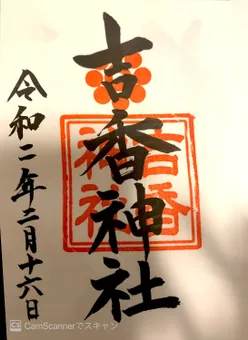 吉香神社
令和二年二月十六日
吉香神社
CS CamScannerでスキャン